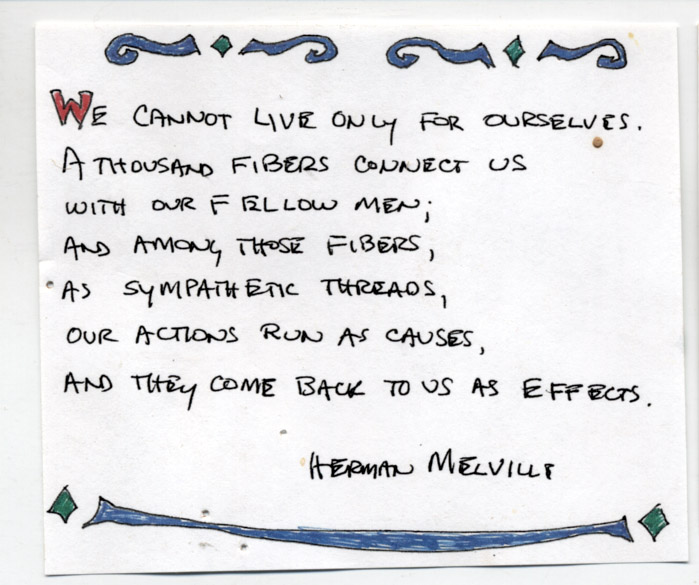 WE CANNOT LIVE ONLY FOR OURSELVES.
A THOUSAND FIBERS CONNECT US
WITH OUR FELLOW MEN;
AND AMONG THOSE FIBERS,
AS SYMPATHETIC THREADS,
OUR ACTIONS RUN AS CAUSES,
AND THEY COME BACK TO US AS EFFECTS.
HERMAN MELVILLE